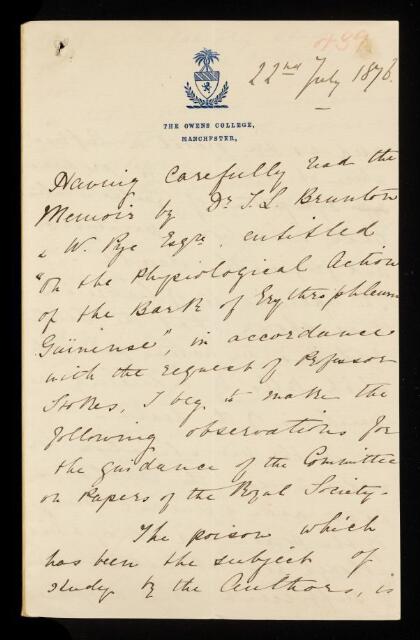 439
22nd July 1876.
THE OWENS COLLEGE,
MANCHESTER,
Having carefully read the
Memoir by Dr T. L. Brunton
& W. Pye Esqre, entitled
"On the Physiological Action
of the Bark of Erythrophleum
Guinense", in accordance
with the request of Professor
Stokes, I beg to make the
following observations for
the guidance of the Committee
on Papers of the Royal Society.
The poison which
has been the subject of
study by the Authors, is